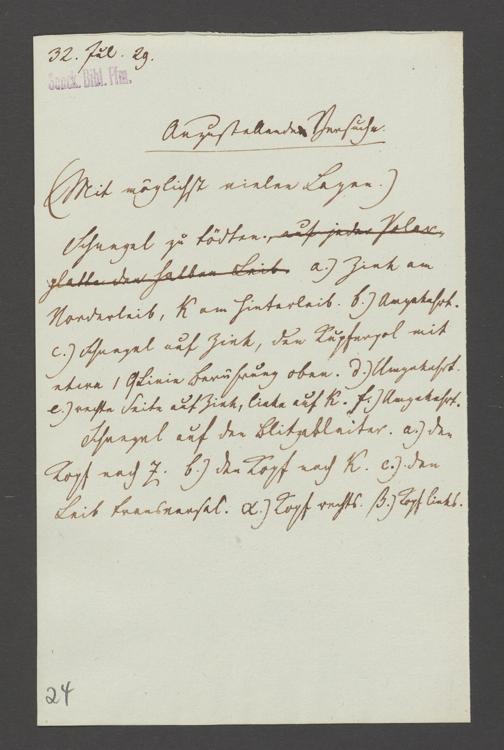 32. Jul. 29.
Senck. Bibl. Ffm.
Anzustellende Versuche.
(Mit möglichst vielen Lagen.)
Schnegel zu tödten, auf jeder Polar-
platte den halben Leib. a.) Zink am
Vorderleib, K am Hinterleib. b.) Umgekehrt.
c.) Schnegel auf Zink, den Kupferpol mit
etwa 1 □Linie Berührung oben. d.) Umgekehrt.
e.) rechte Seite auf Zink, linke auf K. f.) Umgekehrt.
Schnegel auf den Blitzableiter. a.) den
Kopf nach Z. b.) den Kopf nach K. c.) den
Leib transversal. α.) Kopf rechts. β.) Kopf links.
24